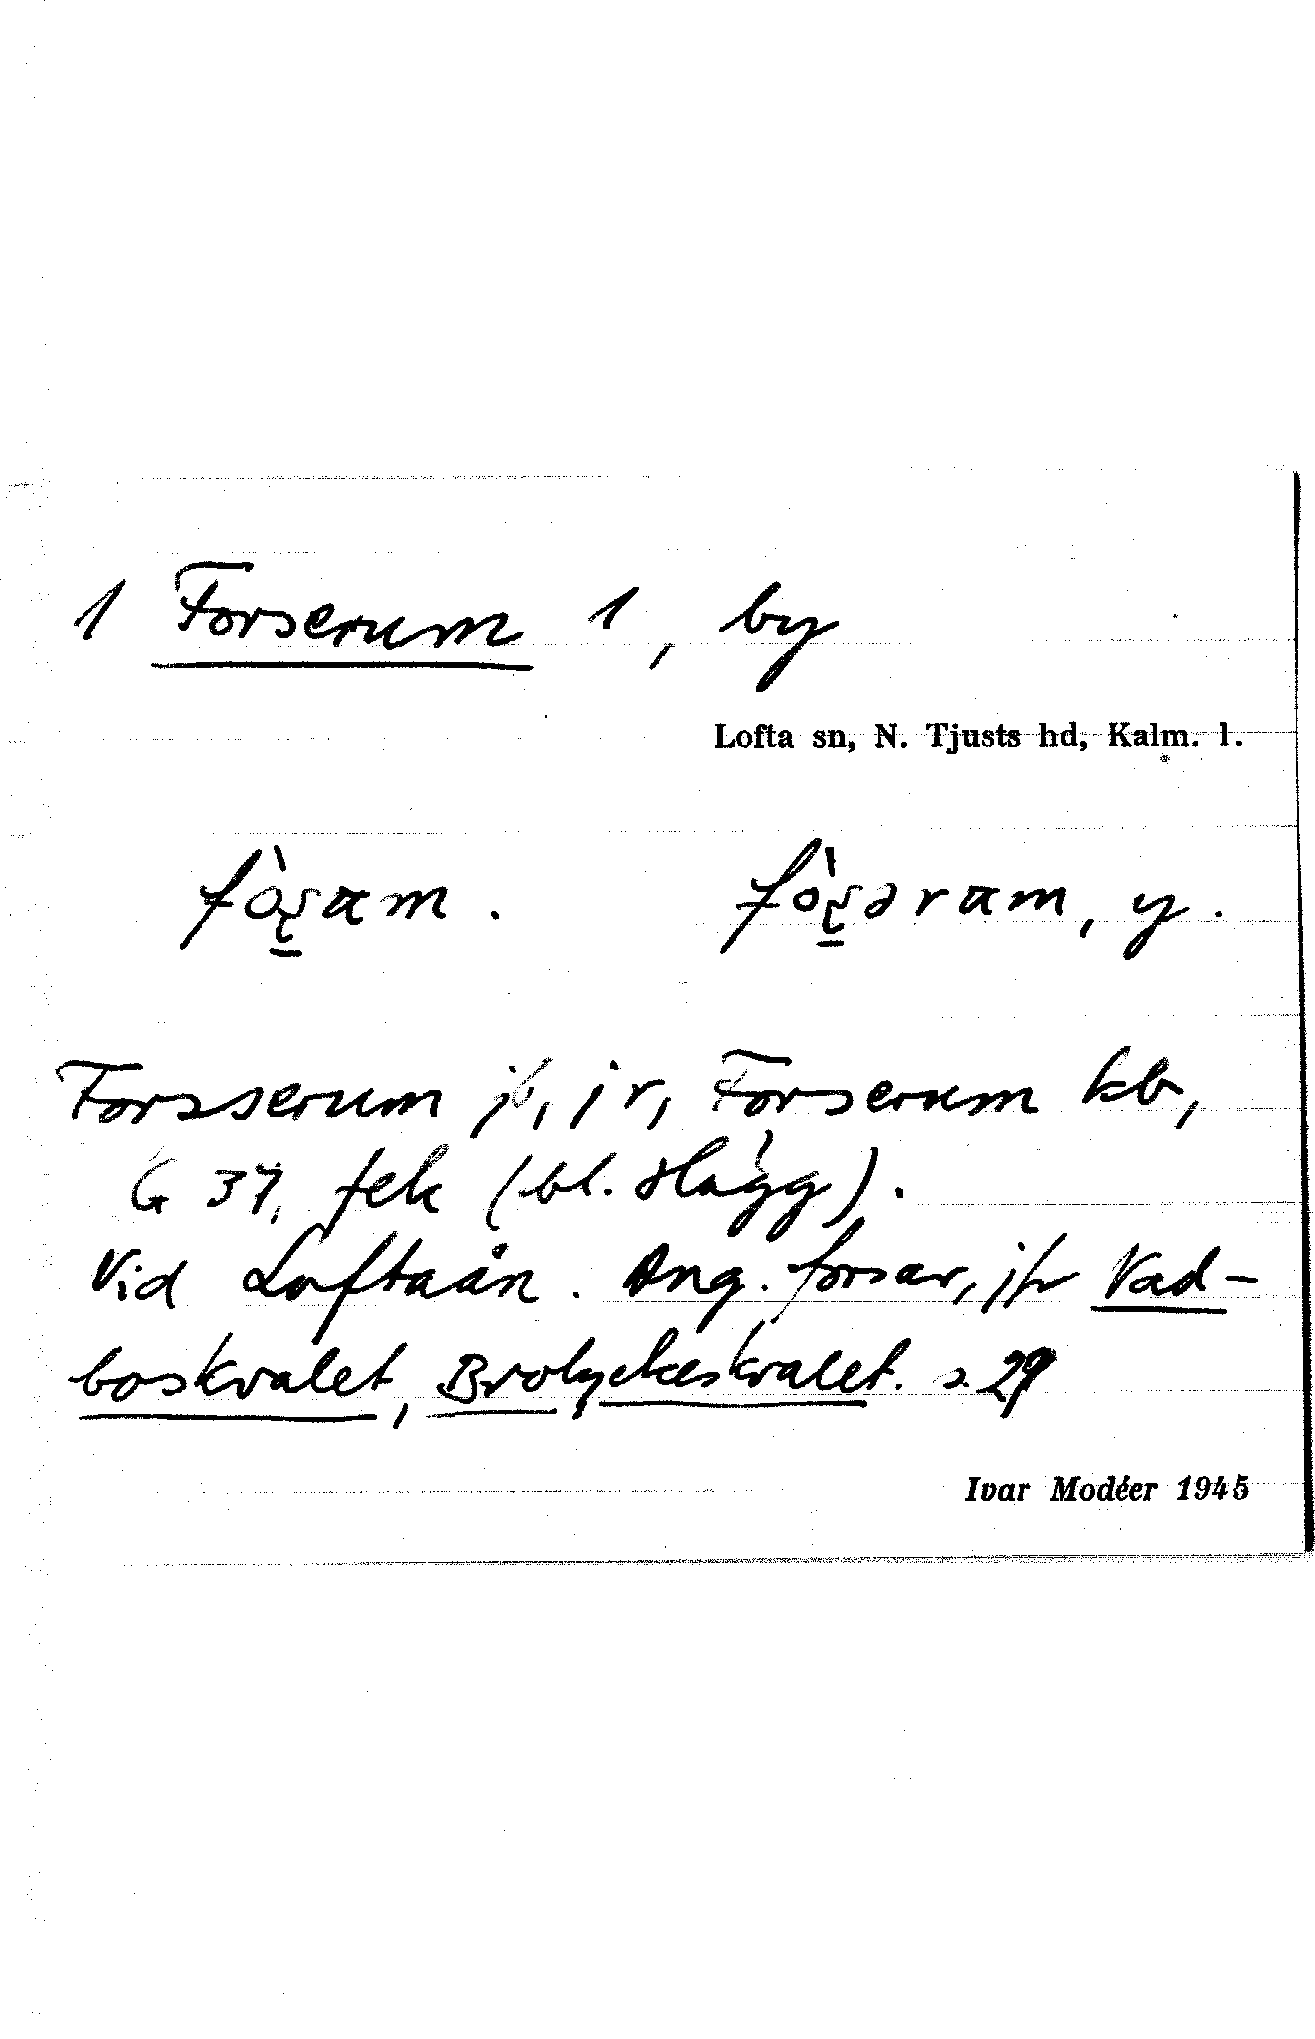 1 Forserum 1, by
Lofta sn, N. Tjusts hd, Kalm. l.
y.
Forsserum jb, jr, Forserum kb,
G 37, fek (bl. slagg).
Vid Loftaån. Ang. forsar, jfr Vad-
boskvalet, Brolyckeskvalet. s. 29
Ivar Modéer 1945